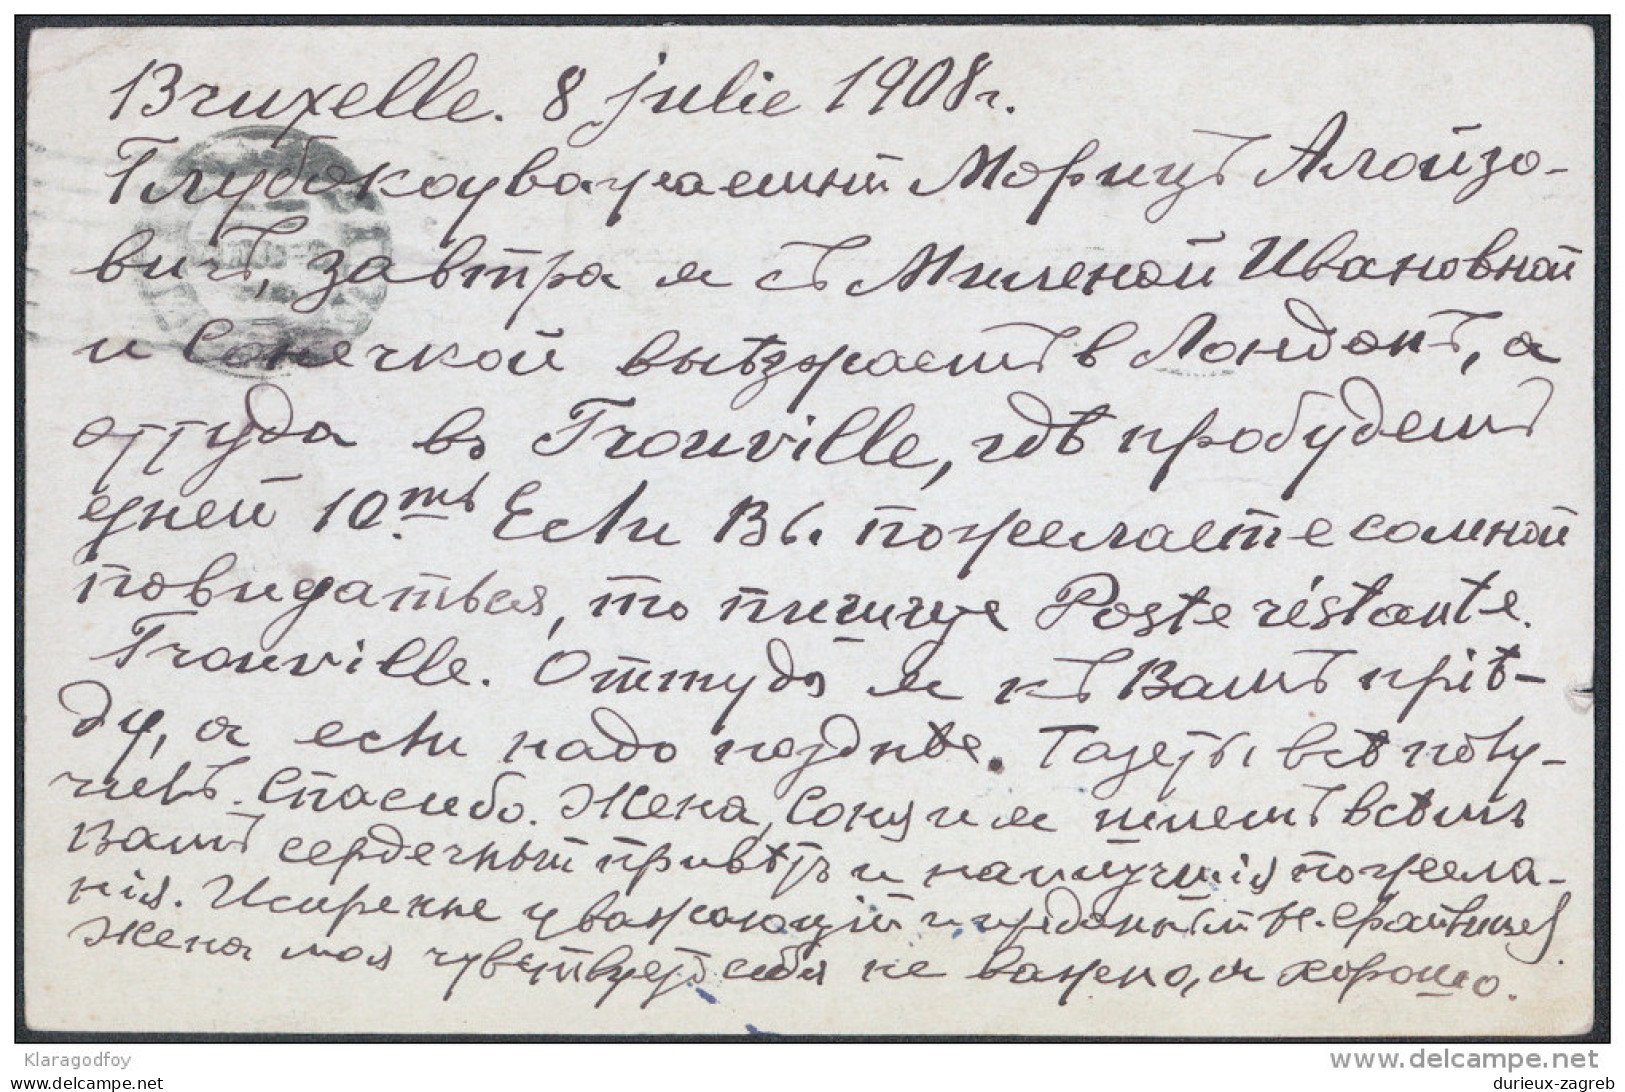 Bruxelle. 8 julie 1908 г.
Глубокоуважаемый Морицъ Алойзо-
вичъ, завтра я съ Миленой Ивановной
и Сонечкой выѣзжаемъ в Лондонъ, а
оттуда въ Trouville, гдѣ пробудемъ
дней 10ть. Если Вы пожелаете со мной
повидаться, то пишите Poste réstante.
Trouville. Оттуда я къ Вамъ пріѣ-
ду, а если надо позднѣе. Газеты всѣ полу-
чилъ. Спасибо. Жена, Соня и я шлемъ всѣмъ
Вамъ сердечный привѣтъ и наилучшія пожела-
нія. Искренне уважающій и преданный
Жена моя чувствуетъ себя не важно, а хорошо.
Klaragodfoy
www.delcampe.net
durieux-zagreb